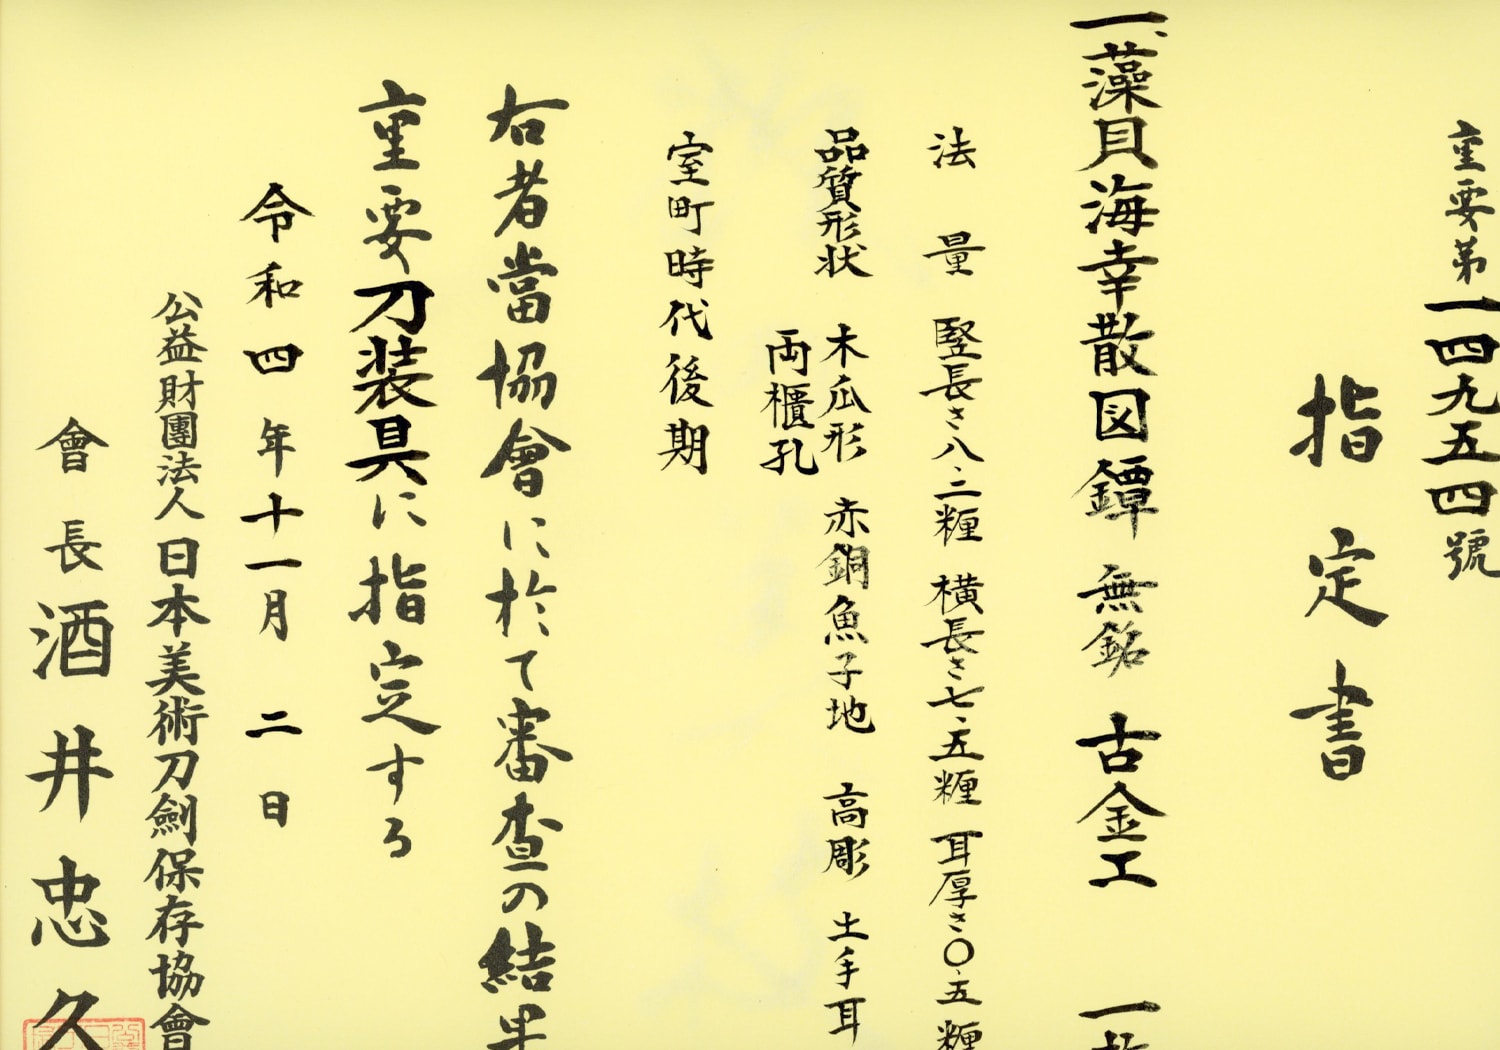 重要第一四九五四號
指定書
一、藻貝海幸散図鐔 無銘 古金工 一枚
法量 竪長さ八・二糎 横長さ七・五糎 耳厚さ〇・五糎
品質形状 木瓜形 赤銅魚子地 高彫 土手耳
両櫃孔
室町時代後期
右者當協會に於て審査の結果
重要刀装具に指定する
令和四年十一月二日
公益財團法人日本美術刀劍保存協會
會長酒井忠久